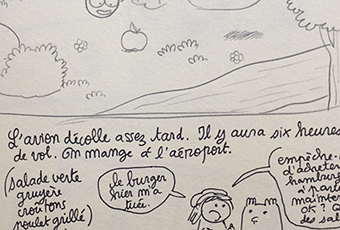 L'avion décolle assez tard. Il y aura six heures
de vol. On mange à l'aéroport.
(salade verte
gruyère
croûtons
poulet grillé)
le burger
hier m'a
tuée.
empêche-
d'acheter
hamburg
à partir
mainten
OK ?
des sal